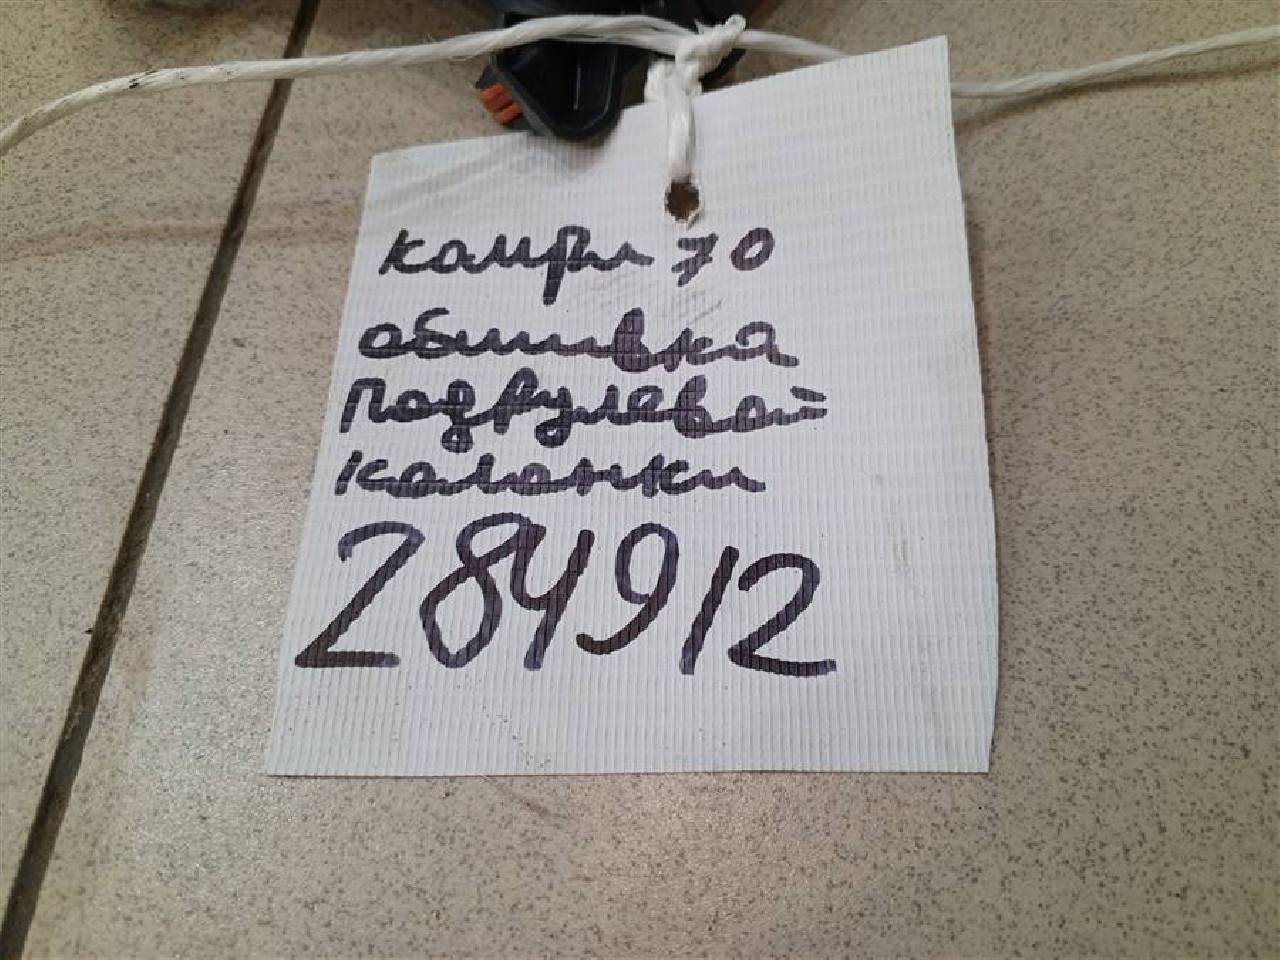 камри 70
обшивка
подрулевой
калонки
284912